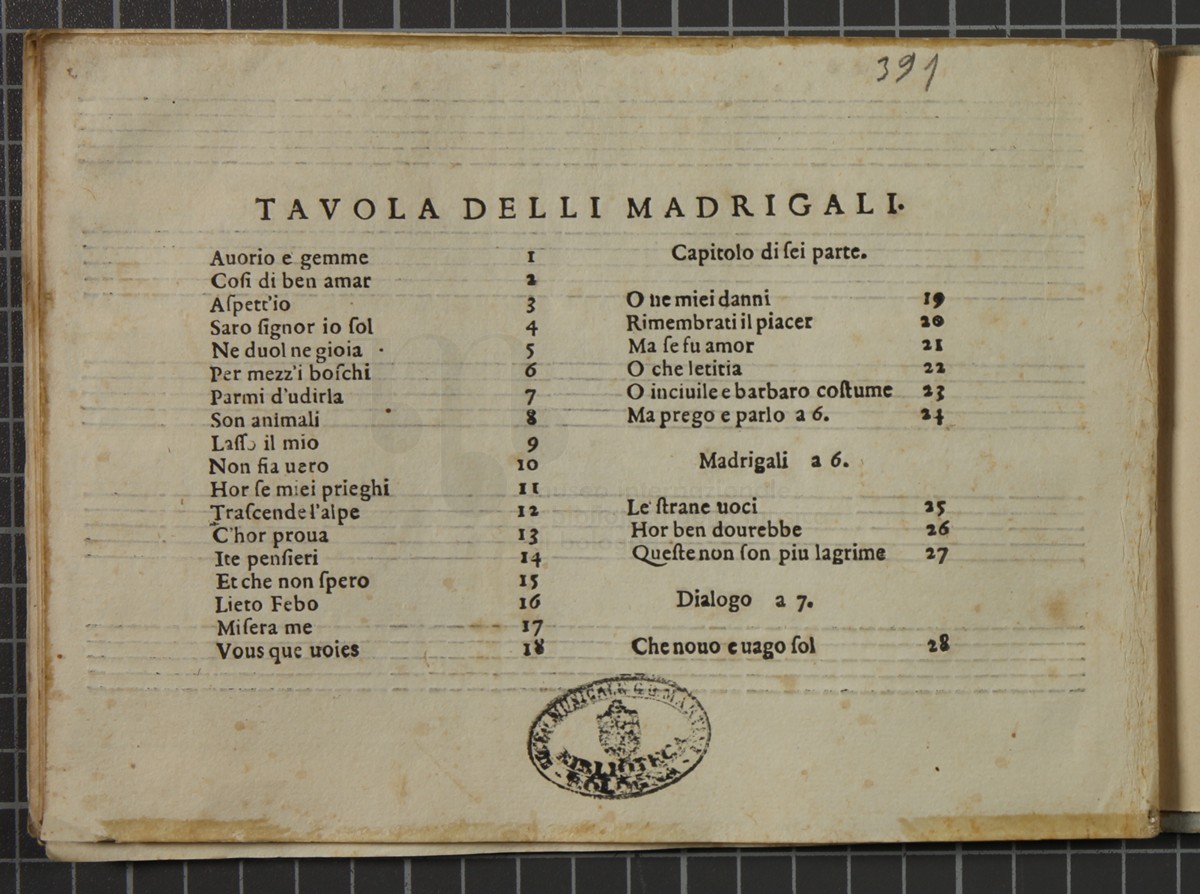 391
TAVOLA DELLI MADRIGALI.
Auorio e gemme 1
Coſi di ben amar 2
Aſpett'io 3
Saro ſignor io ſol 4
Ne duol ne gioia 5
Per mezz'i boſchi 6
Parmi d'udirla 7
Son animali 8
Laſſo il mio 9
Non ſia uero 10
Hor ſe miei prieghi 11
Traſcende l'alpe 12
C'hor proua 13
Ite penſieri 14
Et che non ſpero 15
Lieto Febo 16
Miſera me 17
Vous que uoies 18
Capitolo di ſei parte.
O ne miei danni 19
Rimembrati il piacer 20
Ma ſe fu amor 21
O che letitia 22
O inciuile e barbaro coſtume 23
Ma prego e parlo a 6. 24
Madrigali a 6.
Le ſtrane uoci 25
Hor ben dourebbe 26
Queſte non ſon piu lagrime 27
Dialogo a 7.
Che nouo e uago ſol 28
LICEO MUSICALE G.B. MARTINI
BIBLIOTECA
BOLOGNA